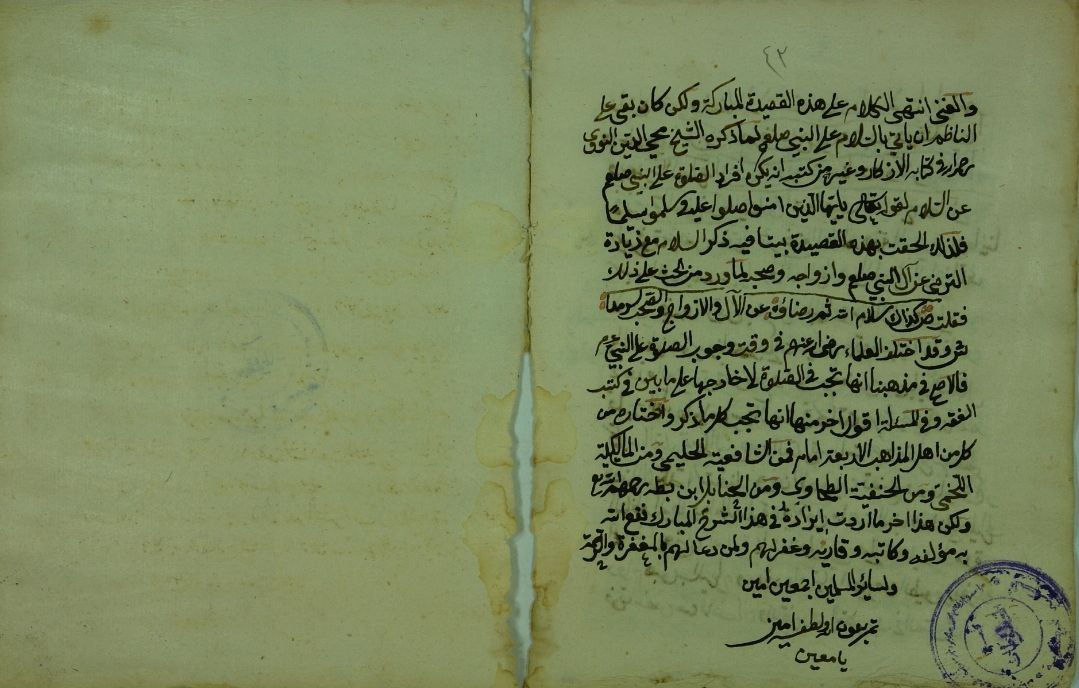 ٤٢
والمغنى انتهى الكلام على هذه القصيدة المباركة ولكن كان بقي على
الناظم ان ياتي بالسلام على النبي صلعم لما ذكره الشيخ محي الدين النووي
رحمه الله في كتابه الاذكار وغيره من كتبه انه يكره افراد الصلوة على النبي صلعم
عن السلام لقوله تعالى يايها الذين امنوا صلوا عليه وسلموا تسليما
فلذلك الحقت بهذه القصيدة بيتا فيه ذكر السلام مع زيادة
الترضي عن آل النبي صلعم وازواجه وصحبه لما ورد من الحث على ذلك
فقلت ص كذاك سلام الله ثم رضاؤه عن الآل والازواج والصحب
ش وقد اختلف العلماء رضي الله عنهم في وقت وجوب الصلاة على النبي
فالاصح في مذهبنا انها تجب في الصلوة لا خارجها على ما بين في كتب
الفقه وفي المسئلة اقوال اخر منها انها تجب كلما ذكر واختاره من
كل من اهل المذاهب الاربعة امام فمن الشافعية الحليمي ومن المالكية
اللخمي ومن الحنفية الطحاوي ومن الحنابلة ابن بطه رحمهم الله تع
ولكن هذا اخر ما اردت ايراده في هذا الشرح المبارك نفع الله
به مؤلفه وكاتبه وقاريه وغفر لهم ولمن دعا لهم بالمغفرة والرحمة
ولسائر المسلمين اجمعين امين
تم بعون الله ولطفه امين
يا معين